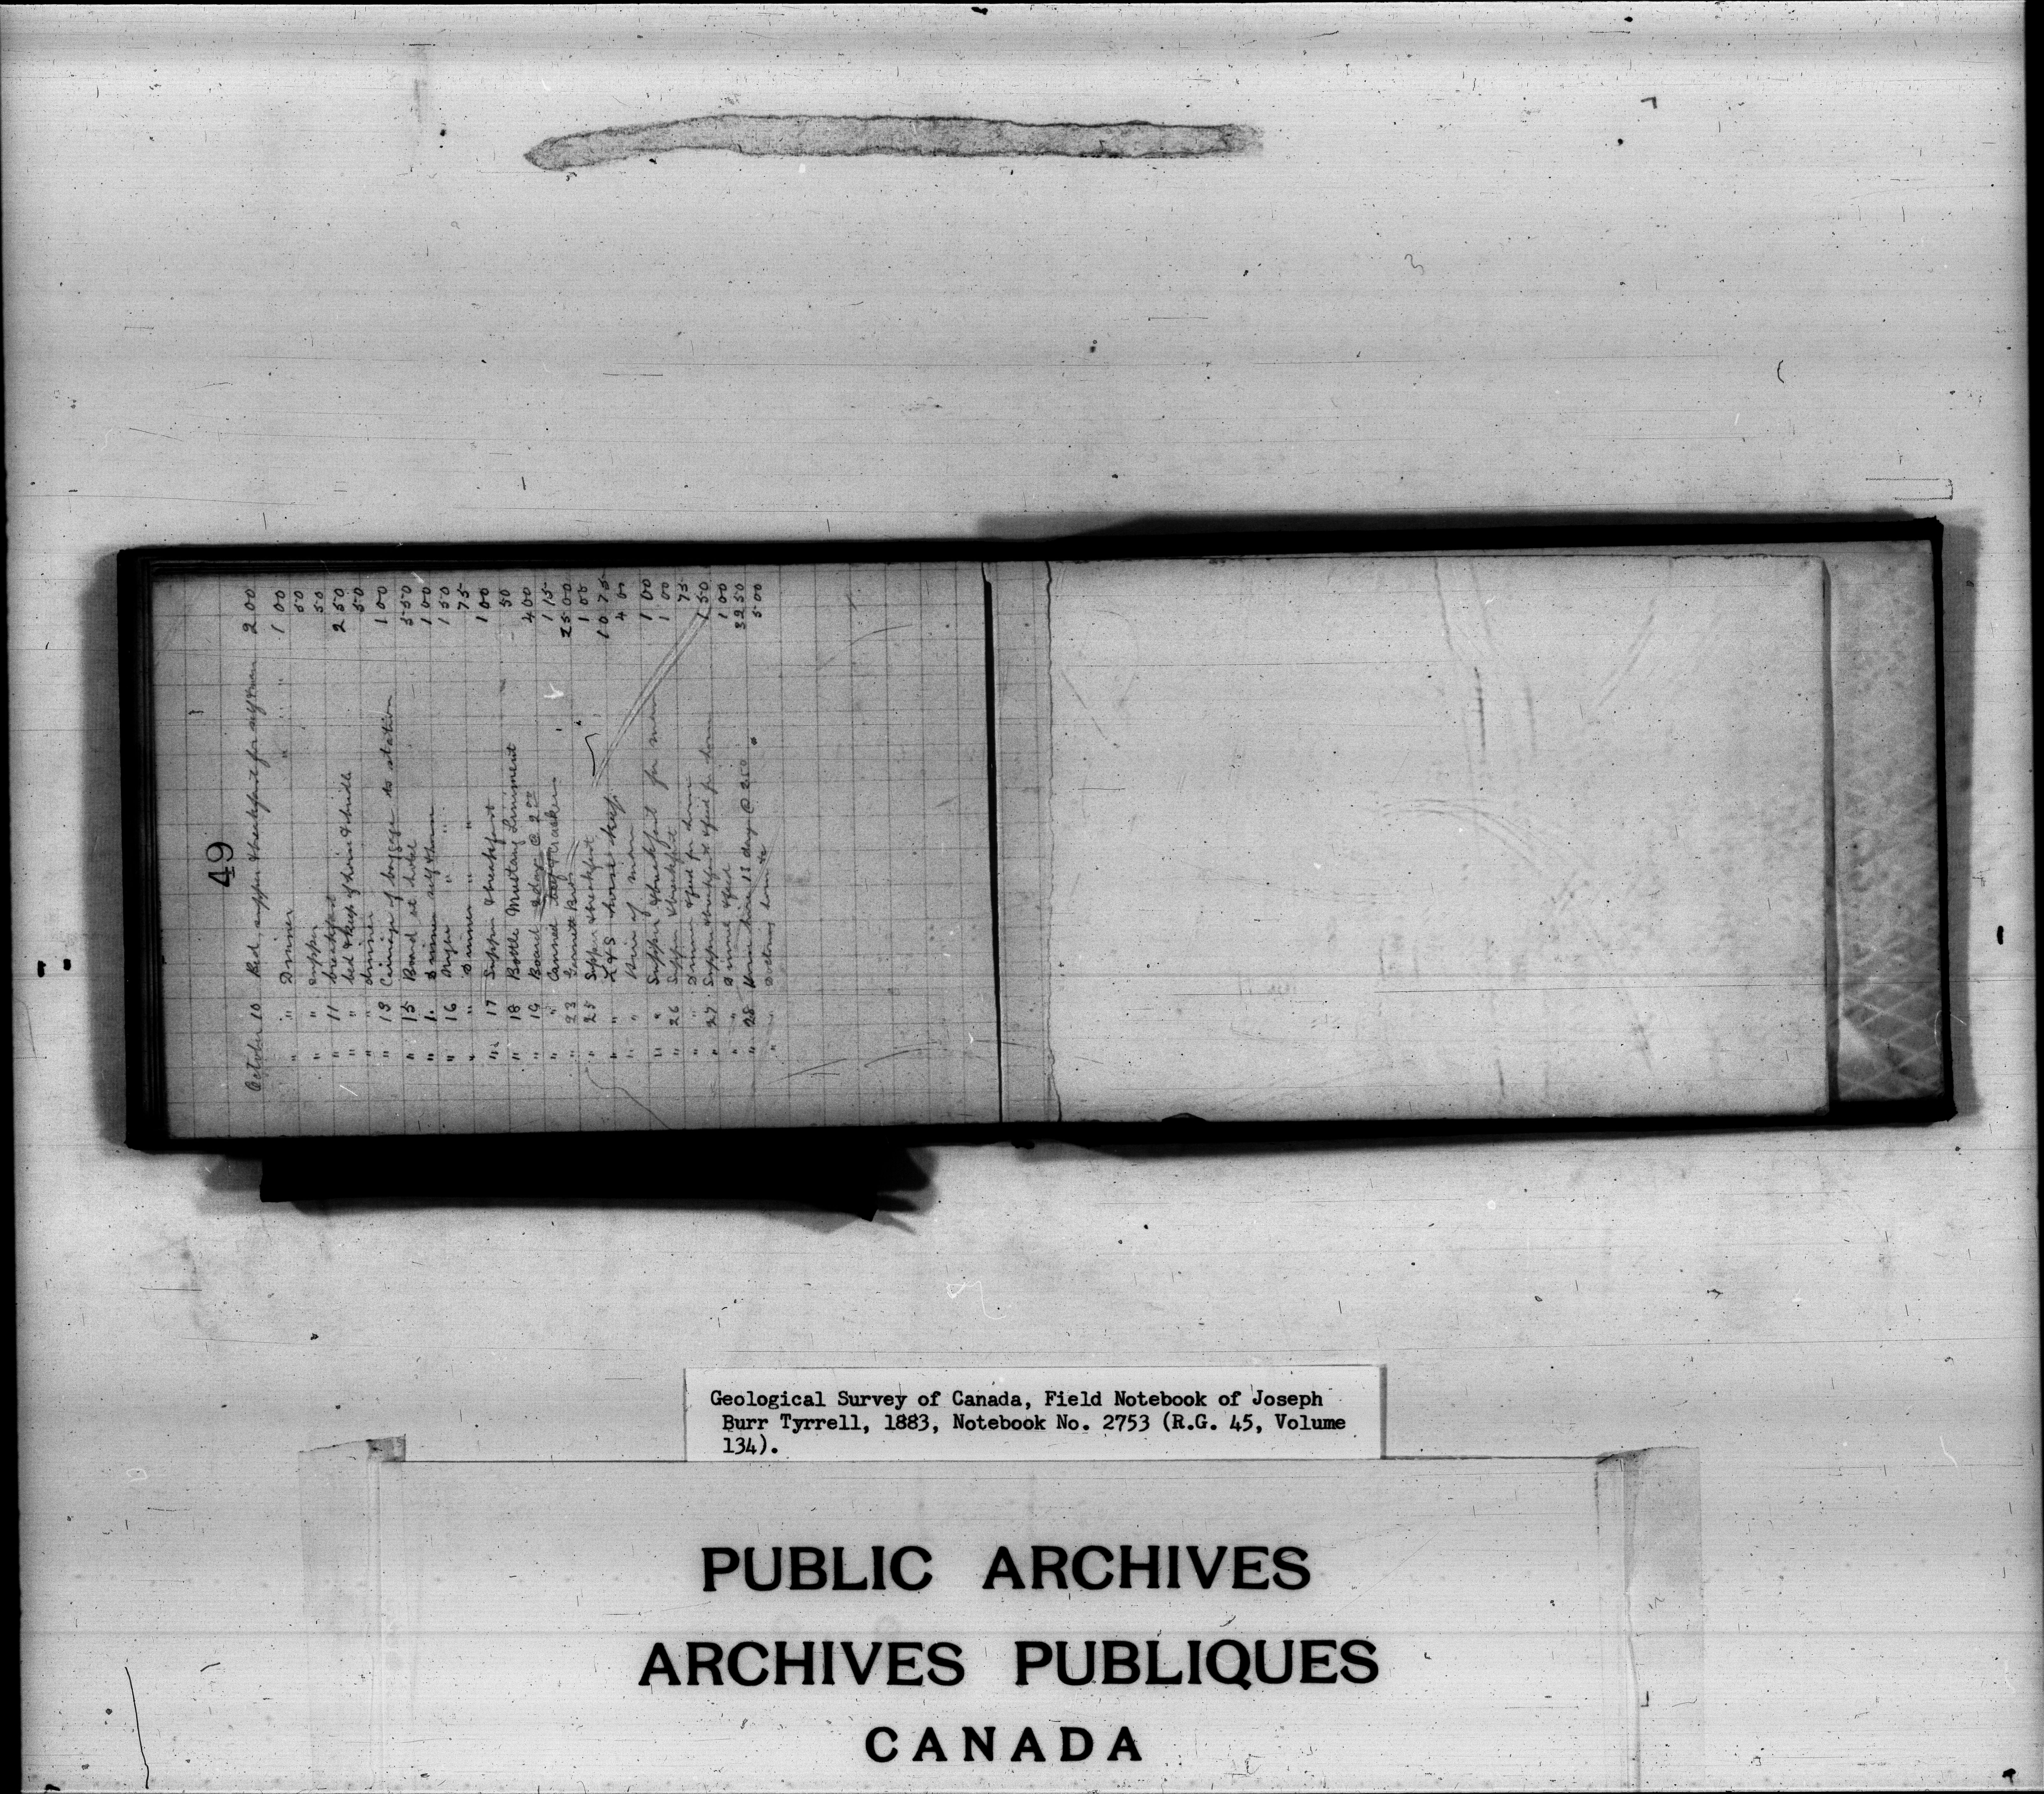 49
October 10 Bed, supper & breakfast for self & man 2 00
" " Dinner " " " 1 00
" " Supper 50
" 11 breakfast 50
" " bed & keep of horse & 2 50
" " dinner 50
" 13 Carriage of baggage to station 1 00
" 15 Board at hotel 5 50
" Dinner self & man 1 00
" 16 Night " " 1 50
" " Dinner " " 75
" 17 Supper & breakfast 1 00
" 18 Bottle Mustang Liniment 50
" 19 Board 2 days @ 2 00 4 00
" " Canned beef & crackers 1 15
" 23 Garnett Bros 25 00
" 25 Supper & breakfast 1 00
" " horse keep 10 75
" " Hire of man 4 00
" " Supper & breakfast for men 1 00
" 26 Supper & breakfast 1 00
" " Dinner & feed for horse 75
" 27 Supper & breakfast & feed for horse 1 50
" " Dinner & feed 1 00
" 28 Horse hire 13 days @ 2 50 32 50
" " 5 00
Geological Survey of Canada, Field Notebook of Joseph
Burr Tyrrell, 1883, Notebook No. 2753 (R.G. 45, Volume
134).
PUBLIC ARCHIVES
ARCHIVES PUBLIQUES
CANADA